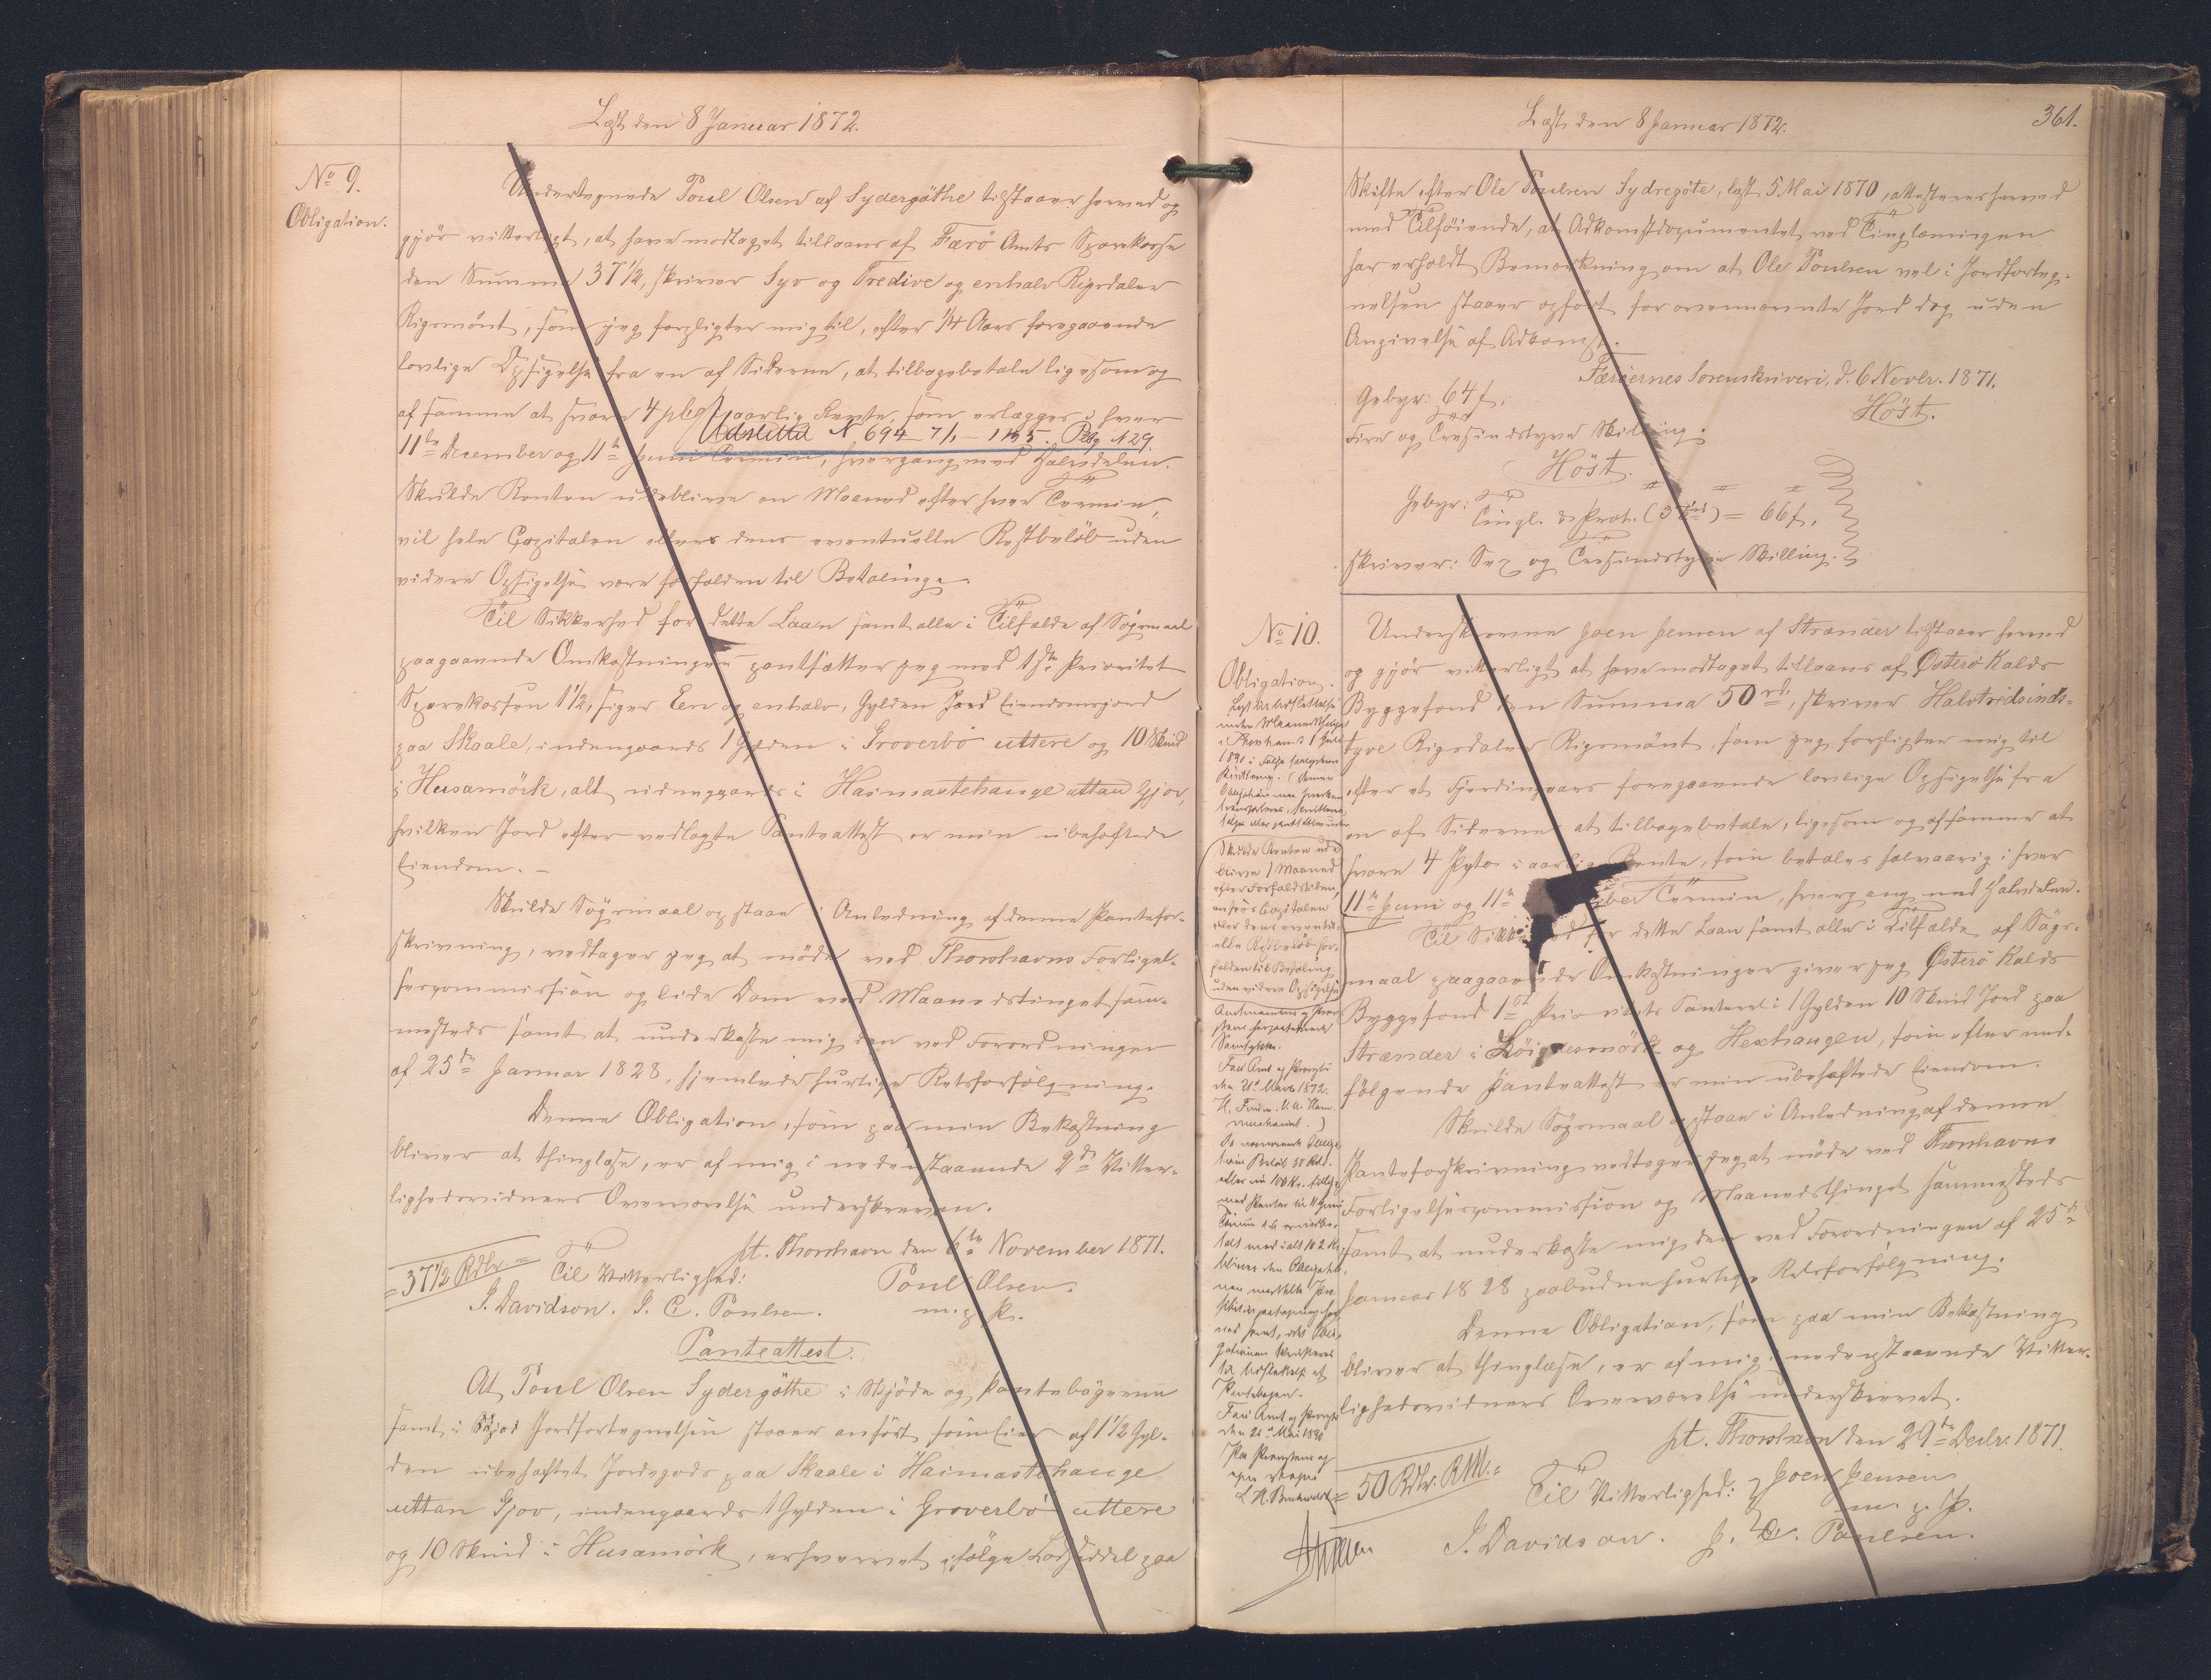 Læst den 8 Januar 1872.
No 9.
Obligation.
Undertegnede Poul Olsen af Sydergöthe tilstaaer herved og
gjör vitterligt, at have modtaget tillaans af Færö Amts Sparekasse
den Summa 37 1/2, skriver Syv og Tredive og enhalv Rigsdaler
Rigsmönt, som jeg forpligter mig til, efter 1/4 Aars foregaaende
lovlige Opsigelse fra en af Siderne, at tilbagebetale ligesom og
af samme at svare 4 pCt aarlig Rente, som erlægges i hver
Udslettet N 694
11te December og 11te Juni Termin, hvergang med Halvdelen.
Skulde Renten udeblive en Maaned efter hver Termin,
vil hele Capitalen ellers dens eventuelle Restbelöb uden
videre Opsigelse være forfalden til Betaling.
Til Sikkerhed for dette Laan samt alle i Tilfælde af Søgsmaal
paagaaende Omkostninger pantsætter jeg med 1ste Prioritet
Sparekassen 1 1/2, siger Een og enhalv, Gylden Jord Eiendomsjord
paa Skaale, indengaards 1 Gylden i Groverbö uttere og 10 Skind
i Husamörk, alt udengaards i Haimastehauge uttan Gjov,
hvilken Jord efter vedlagte Panteattest er min ubehæftede
Eiendom. -
Skulde Søgsmaal opstaae i Anledning af denne Pantefor-
skrivning, vedtager jeg at möde ved Thorshavns Forligel-
sescommission og lide Dom ved Maanedstinget sam-
mesteds samt at underkaste mig den ved Forordningen
af 25de Januar 1828, hjemlede hurtige Retsforfölgning.
Denne Obligation, som paa min Bekostning
bliver at thinglæse, er af mig i nedenstaaende 2de Vitter-
lighedsvidners Overværelse underskreven.
pt. Thorshavn den 6te November 1871.
= 37 1/2 Rdlr. = Til Vitterlighed: Poul Olsen.
J. Davidson. J. C. Poulsen. m. p. P.
Panteattest.
At Poul Olsen Sydergöthe i Skjöde og Pantebögerne
samt i Jordfortegnelsen staaer anfört som Eier af 1 1/2 Gyl-
den ubehæftet Jordegods paa Skaale i Haimastehauge
uttan Gjov, indengaards 1 Gylden i Groverbö uttere
og 10 Skind i Husamörk, erhvervet ifölge Lodseddel paa
Læst den 8 Januar 1872.
361.
Skifte efter Ole Poulsen Sydregöte, læst 5 Mai 1870, attesteres herved
med Tilföiende, at Adkomstdocumentet ved Tinglæsningen
har erholdt Bemærkning om at Ole Poulsen vel i Jordforteg-
nelsen staaer opfört for ovennævnte Jord dog uden
Angivelse af Adkomst.
Færöernes Sorenskriveri, d. 6 Novbr. 1871.
Gebyr: 64 s. Höst.
Fire og Tresindstyve Skilling.
Höst.
Gebyr:
Tingl. & Prot. = 66 s.
skriver: Sex og Tresindstyve Skilling.
No 10.
Obligation.
Underskrevne Joen Jensen af Strænder tilstaaer herved
og gjör vitterligt at have modtaget tillaans af Österö Kalds
Byggefond den Summa 50 rd, skriver Halvtredsinds-
tyve Rigsdaler Rigsmönt, som jeg forpligter mig til
efter et Fjerdingaars foregaaende lovlige Opsigelse fra
en af Siderne at tilbagebetale, ligesom og af samme at
svare 4 Pcto i aarlig Rente, som betales halvaarig i hver
11te Juni og 11te Termin, hvergang med Halvdelen.
Til Sikkerhed for dette Laan samt alle i Tilfælde af Sögs-
maal paagaaende Omkostninger giver jeg Österö Kalds
Byggefond 1ste Prioritets Panteret i 1 Gylden 10 Skind Jord paa
Strænder i og Hexhaugen, som efter med-
fölgende Panteattest er min ubehæftede Eiendom.
Skulde Sögsmaal opstaae i Anledning af denne
Panteforskrivning vedtager jeg at möde ved Thorshavns
Forligelsescommission og Maanedsthinget sammesteds
samt at underkaste mig den ved Forordningen af 25de
Januar 1828 paabudne hurtige Retsforfölgning.
Denne Obligation, som paa min Bekostning
bliver at thinglæse, er af mig i nedenstaaende Vitter-
lighedsvidners Overværelse underskrevet.
pt. Thorshavn den 29de Decbr. 1871.
= 50 Rdlr. RM. = Joen Jensen
Til Vitterlighed: m. p. P.
J. Davidson. J. C. Poulsen.
Skulde Renten ude
blive 1 Maaned
efter Forfaldstiden,
ansees Capitalen
eller dens eventu-
elle Restbelöb for-
falden til Betaling
uden videre Opsigelse
Samtykke.
Færö Amt og Provsti